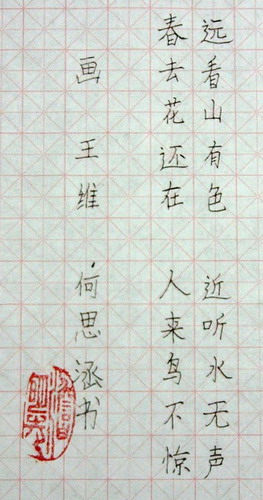 远看山有色 近听水无声
春去花还在 人来鸟不惊
画 王维 何思涵书